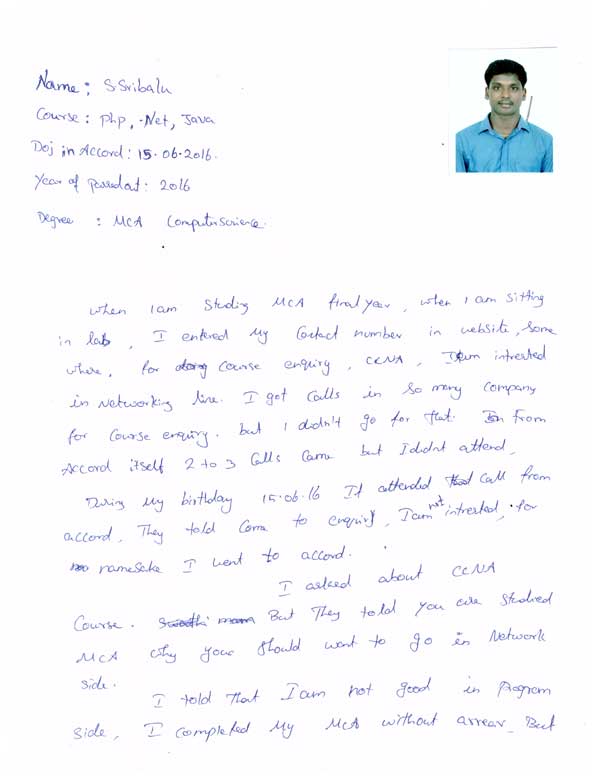 Name : S.Sribalu
Course : php, .Net, Java
Doj in Accord : 15.06.2016.
Year of passedout : 2016
Degree : MCA Computerscience.
when I am Studing MCA final year, when I am sitting
in lab, I entered My Contact number in website, some
where, for Course enquiry, CCNA, I am intrested
in Networking line. I got Calls in so many company
for Course enquiry. but I didn't go for that. From
Accord itself 2 to 3 Calls Came but I didnt attend,
During My birthday 15.06.16 I attended call from
accord, They told Come to enquiry, I am not intrested, for
namesake I went to accord.
I asked about CCNA
Course. But They told you are Studied
MCA why your Should want to go in Network
side.
I told that I am not good in program
side, I completed My MCA without arrear. But